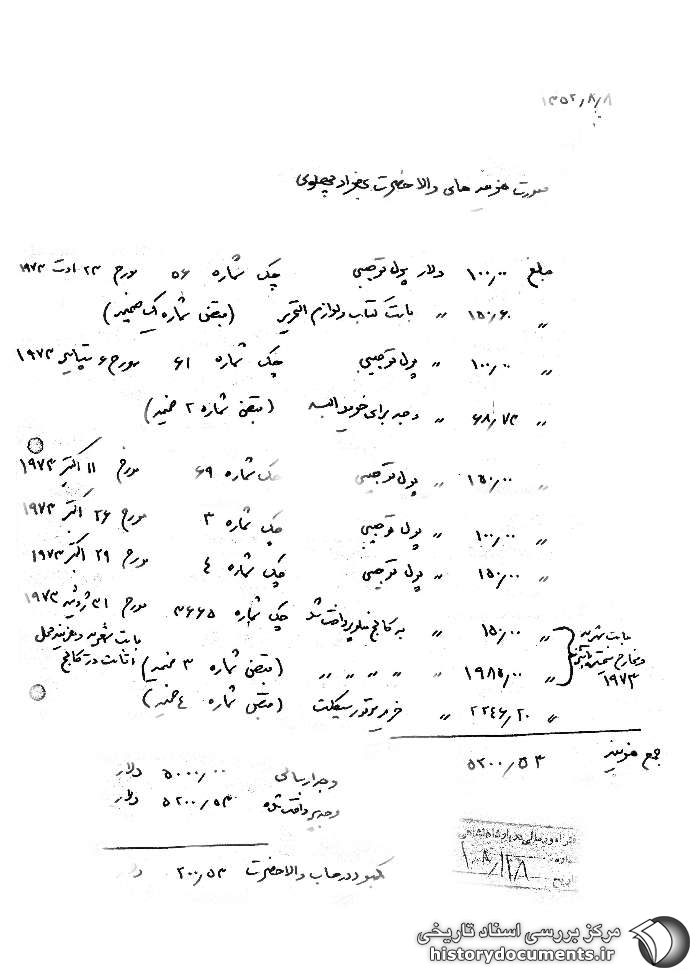 ۱۳۵۲/۸/۸
صورت هزینه های والاحضرت بهزاد پهلوی
مبلغ ۱۰۰/۰۰ دلار پول توجیبی چک شماره ۵۶ مورخ ۲۳ اوت ۱۹۷۳
〃 ۱۵۰/۶۰ 〃 بابت کتاب و لوازم التحریر (قبض شماره یک ضمیمه)
〃 ۱۰۰/۰۰ 〃 پول توجیبی چک شماره ۶۱ مورخ ۶ سپتامبر ۱۹۷۳
〃 ۶۸/۷۳ 〃 وجه برای خرید البسه (قبض شماره ۲ ضمیمه)
〃 ۱۵۰/۰۰ 〃 پول توجیبی چک شماره ۶۹ مورخ ۱۱ اکتبر ۱۹۷۳
〃 ۱۰۰/۰۰ 〃 پول توجیبی چک شماره ۳ مورخ ۲۶ اکتبر ۱۹۷۳
〃 ۱۵۰/۰۰ 〃 پول توجیبی چک شماره ۴ مورخ ۲۹ اکتبر ۱۹۷۳
〃 ۱۵۰/۰۰ 〃 به کالج پرداخت شد چک شماره ۳۶۶۵ مورخ ۳۱ ژوئیه ۱۹۷۳
بابت شهریه و مخارج
۱۹۷۳
〃 ۱۹۸۵/۰۰ 〃 〃 〃 〃 〃 (قبض شماره ۳ ضمیمه) بابت شهریه و هزینه محل
اقامت در کالج
〃 ۲۲۴۶/۲۰ 〃 خرید موتورسیکلت (قبض شماره ۴ ضمیمه)
جمع هزینه ۵۲۰۰/۵۳
وجه ارسالی ۵۰۰۰/۰۰ دلار
وجه پرداخت شده ۵۲۰۰/۵۳ دلار
کمبود در حساب والاحضرت ۲۰۰/۵۳
شماره
تاریخ
مرکز بررسی اسناد تاریخی
historydocuments.ir